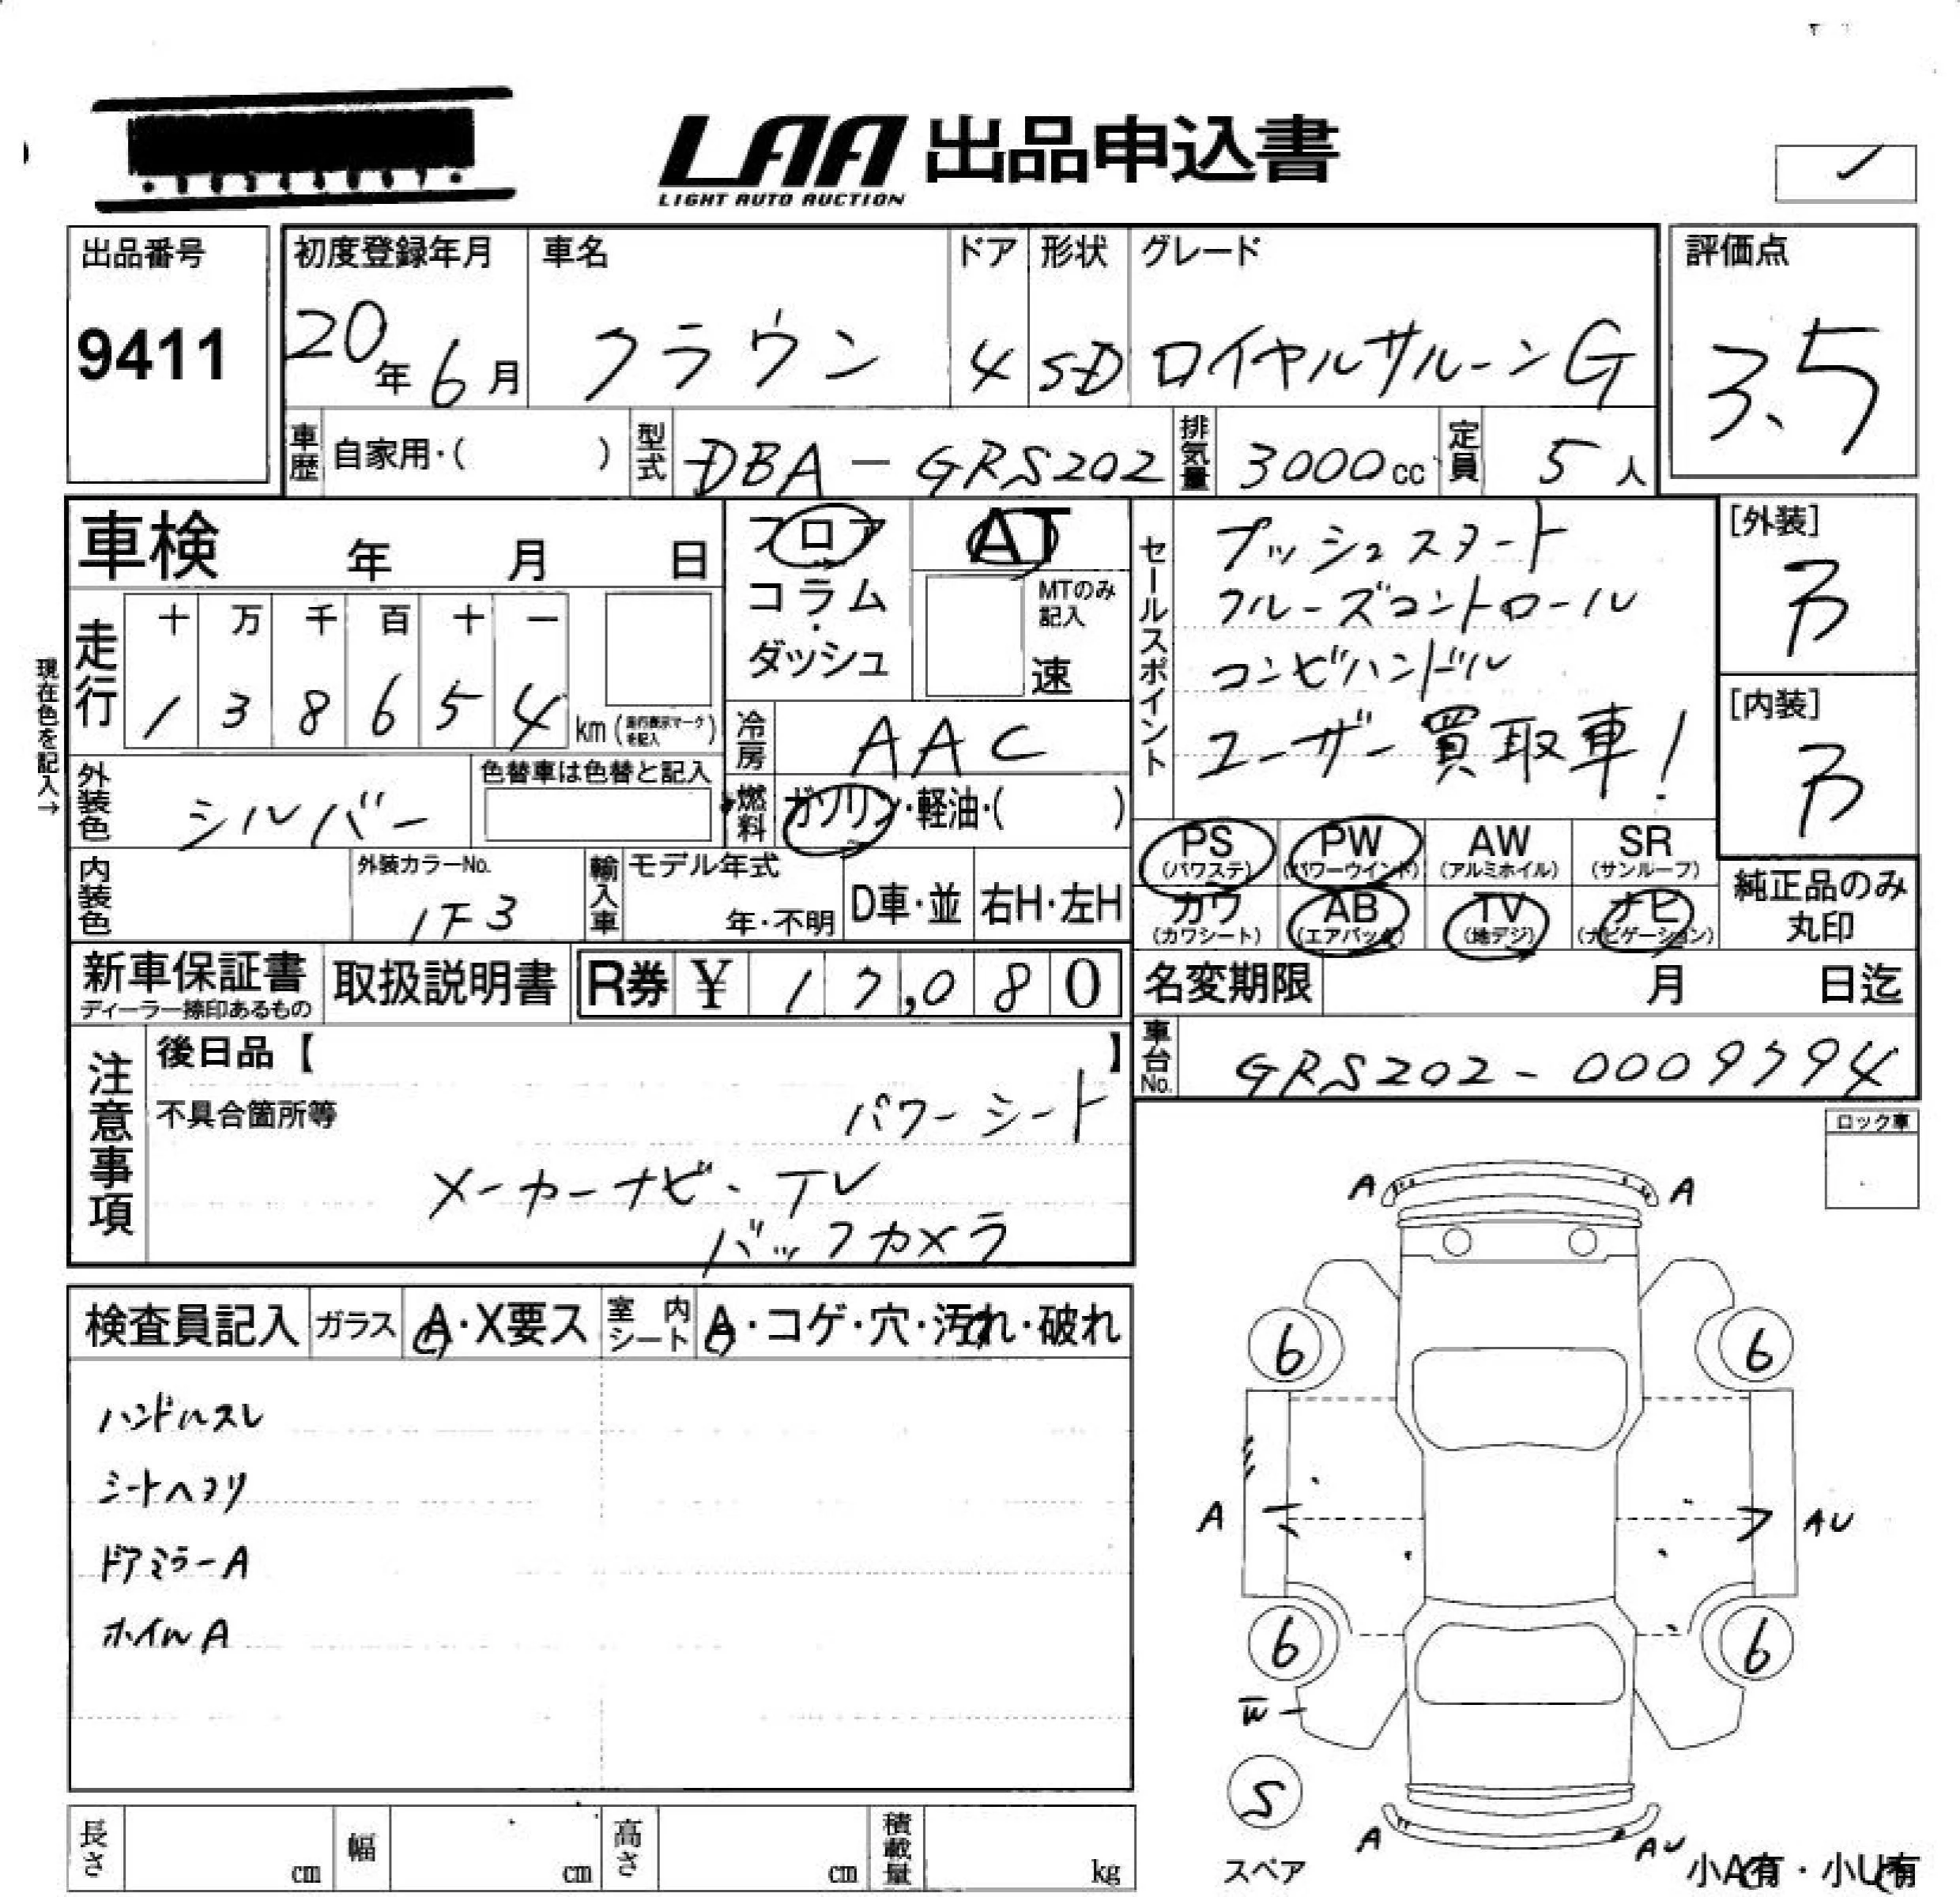 LAA 出品申込書
LIGHT AUTO AUCTION
出品番号
9411
初度登録年月
20年6月
車名
クラウン
ドア
4
形状
SD
グレード
ロイヤルサルーンG
評価点
3.5
車歴 自家用・( )
型式 DBA-GRS202
排気量 3000cc
定員 5人
車検 年 月 日
フロア
コラム
・
ダッシュ
AT
MTのみ
記入
速
セールスポイント
プッシュスタート
クルーズコントロール
コンビハンドル
ユーザー買取車!
[外装]
[内装]
現在色を記入→
走行
十 万 千 百 十 一
1 3 8 6 5 4 km(走行表示マークを記入)
冷房 AAC
外装色 シルバー
色替車は色替と記入
燃料 ガソリン・軽油・( )
PS (パワステ)
PW (パワーウインド)
AW (アルミホイル)
SR (サンルーフ)
カワ (カワシート)
AB (エアバック)
TV (地デジ)
ナビ (ナビゲーション)
純正品のみ
丸印
内装色
外装カラーNo.
1F3
輸入車
モデル年式
年・不明
D車・並
右H・左H
新車保証書
ディーラー捺印あるもの
取扱説明書
R券 ¥ 17,080
名変期限 月 日迄
車台No. GRS202-0009794
注意事項
後日品【 】
不具合箇所等
パワーシート
メーカーナビ・TV
バックカメラ
ロック車
検査員記入
ガラス A・X要ス
室内シート A・コゲ・穴・汚れ・破れ
ハンドルスレ
シートヘコリ
ドアミラーA
ホイルA
A A
6 6
A AU
6 6
W
S
スペア
A AU
小A有・小U有
長さ cm
幅 cm
高さ cm
積載量 kg